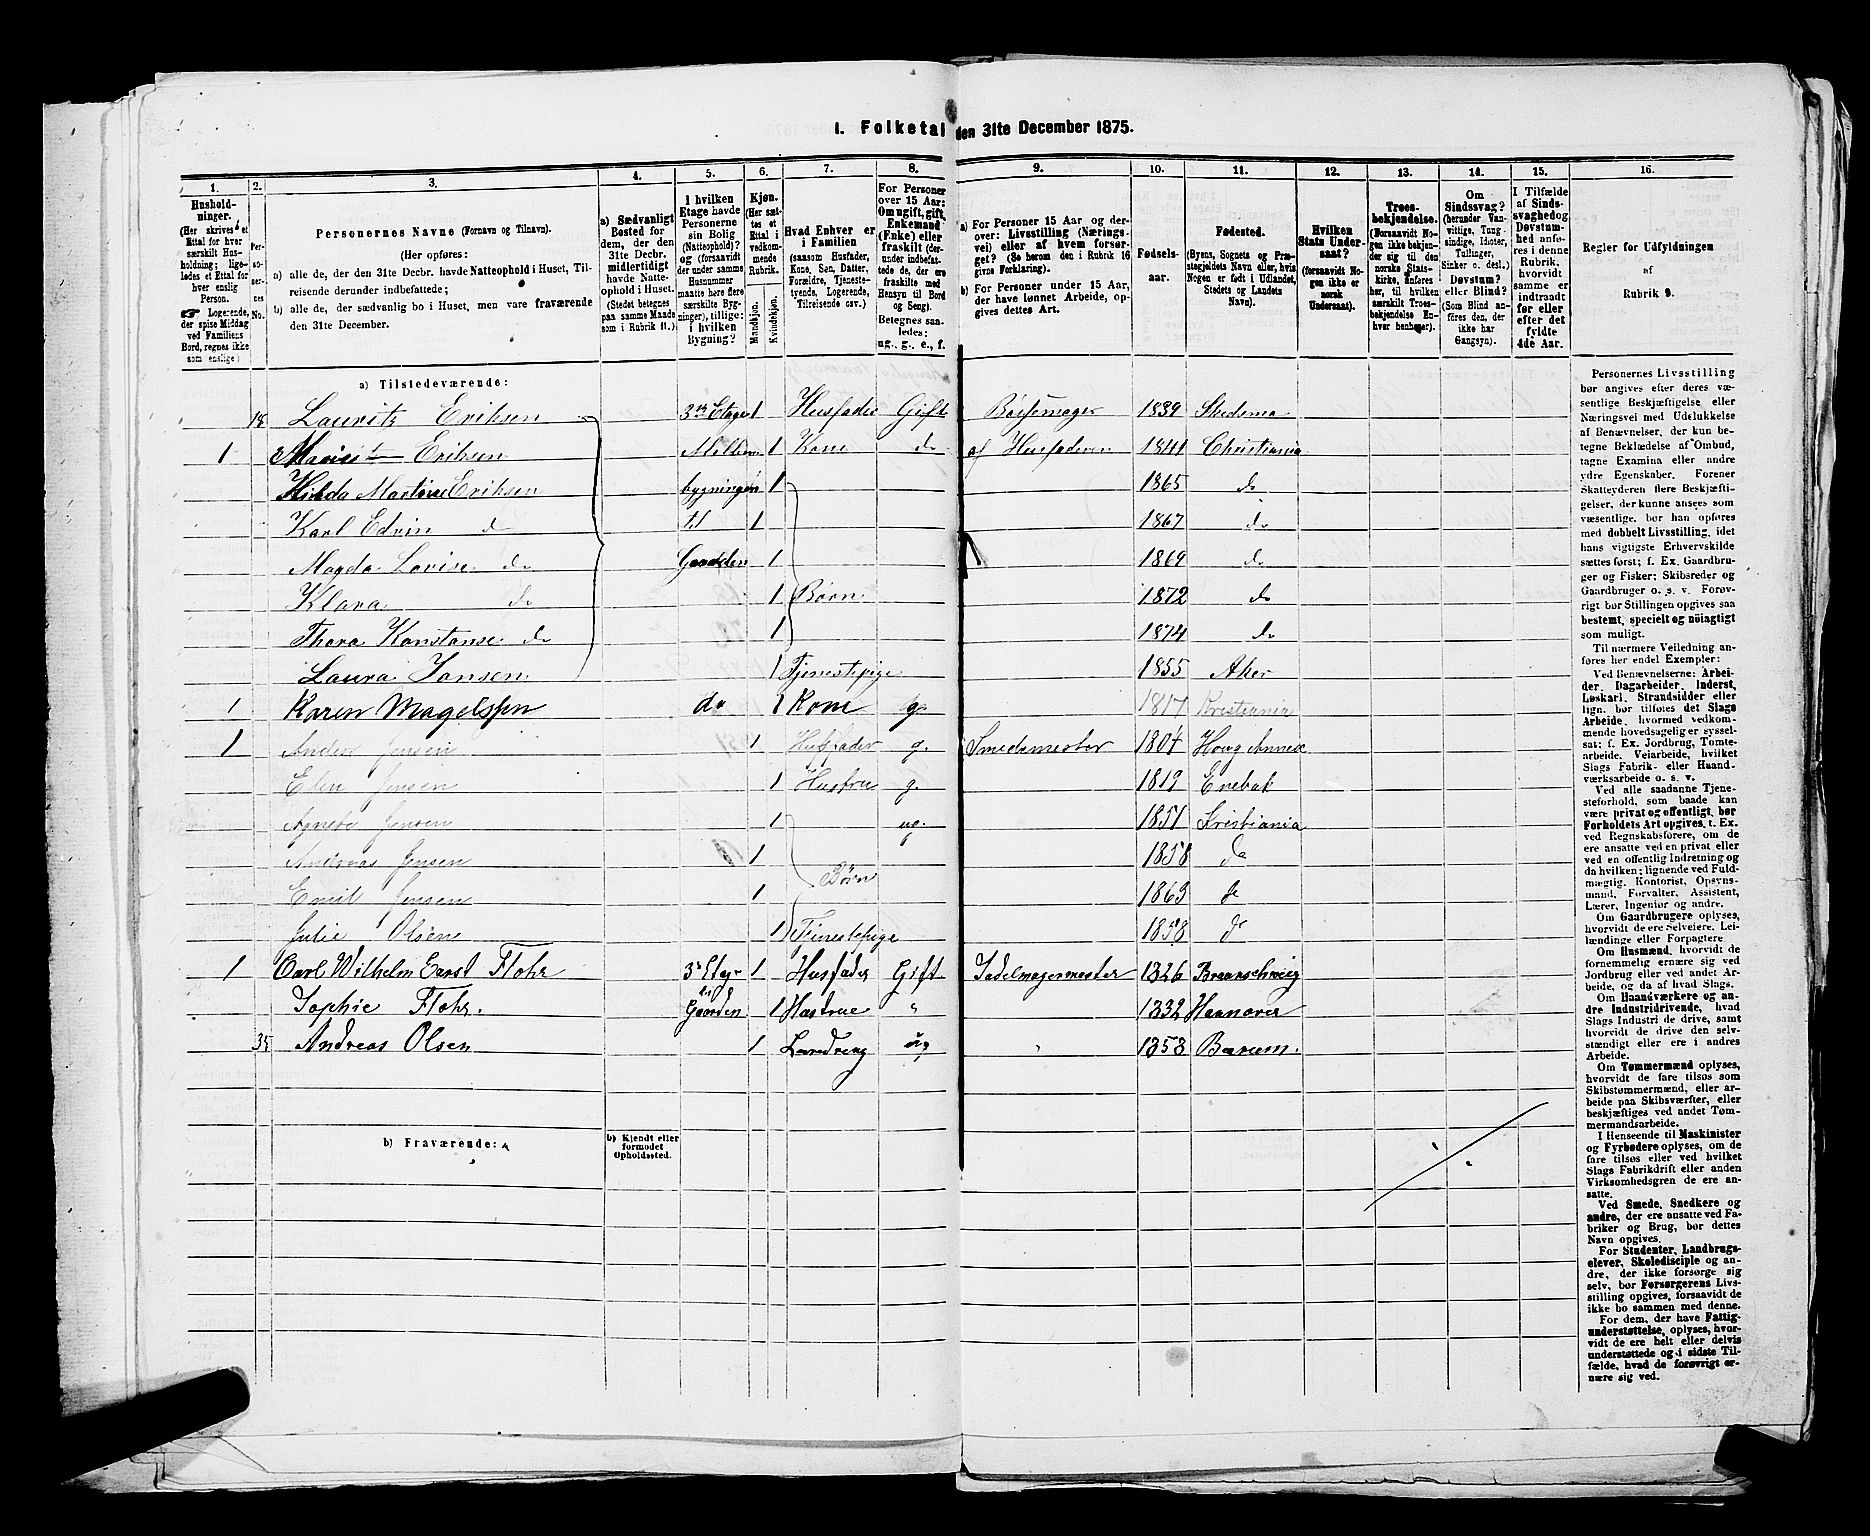 1. Folketal den 31te December 1875.
1. 2. 3. 4. 5. 6. 7. 8. 9. 10. 11. 12. 13. 14. 15. 16.
Hushold-
ninger.
(Her skrives et
Ettal for hver
særskilt Hus-
holdning; lige-
ledes et Ettal for
hver enslig
Person.
☞ Logerende,
der spise Middag
ved Familiens
Bord, regnes ikke
som enslige.
Per-
so-
ner-
nes
No.
Personernes Navne (Fornavn og Tilnavn).
(Her opføres:
a) alle de, der den 31te Decbr. havde Natteophold i Huset, Til-
reisende derunder indbefattede;
b) alle de, der sædvanlig bo i Huset, men vare fraværende
den 31te December.
a) Sædvanligt
Bosted for
dem, der den
31te Decbr.
midlertidigt
havde Natte-
ophold i Huset.
(Stedet betegnes
paa samme Maade
som i Rubrik 11.)
I hvilken
Etage havde
Personerne
sin Bolig
(Natteophold)?
og (forsaavidt
der under samme
Husnummer
maatte høre flere
særskilte Byg-
ninger), tillige: i
hvilken
Bygning?
Kjøn.
(Her sæt-
tes et
Ettal i
vedkom-
mende
Rubrik.
Mandkjøn.
Kvindekjøn.
Hvad Enhver er
i Familien
(saasom Husfader,
Kone, Søn, Datter,
Forældre, Tjeneste-
tyende, Logerende,
Tilreisende osv.)
For Personer
over 15 Aar:
Om ugift, gift,
Enkemand
(Enke) eller
fraskilt (der-
under indbefat-
tede de, der ere
fraskilte med
Hensyn til Bord
og Seng).
Betegnes saa-
ledes:
ug., g., e., f.
a) For Personer 15 Aar og der-
over: Livsstilling (Nærings-
vei) eller af hvem forsør-
get? (Se herom den i Rubrik 16
givne Forklaring).
b) For Personer under 15 Aar,
der have lønnet Arbeide, op-
gives dettes Art.
Fødsels-
aar.
Fødested.
(Byens, Sognets og Præ-
stegjeldets Navn eller, hvis
Nogen er født i Udlandet,
Stedets og Landets
Navn).
Hvilken
Stats Under-
saat?
(forsaavidt No-
gen ikke er
norsk
Undersaat).
Troes-
bekjendelse.
(Forsaavidt No-
gen ikke bekjen-
der sig til den
norske Stats-
kirke, anføres
her, til hvilken
særskilt Troes-
bekjendelse En-
hver henhører).
Om
Sindssvag?
(herunder Van-
vittige, Tung-
sindige, Idioter,
Tullinger,
Sinker o. desl.)
Døvstum?
eller Blind?
(Som Blind an-
føres den, der
ikke har
Gangsyn).
I Tilfælde
af Sinds-
svaghed og
Døvstum-
hed anfø-
res i denne
Rubrik,
hvorvidt
samme er
indtraadt
før eller
efter det
fyldte
4de Aar.
Regler for Udfyldningen
af
Rubrik 9.
a) Tilstedeværende:
18 Lauritz Eriksen 3die Etage 1 Husfader Gift Bøssemager 1839 Skedsmo
1 Eriksen Mellem 1 Kone do af Husfaderen 1841 Christiania
Hilda Martine Eriksen bygningen 1 1865 do
Karl Edvin do til 1 1867 do
Magda Lovise do Gaarden 1 1869 do
Klara do 1 Børn 1872 do
Thora Konstanse do 1 1874 do
Laura Jansen 1 Tjenestepige 1855 Aker
1 Karen Magelssen do 1 Kone g. 1817 Kristiania
1 Anders Jensen 1 Husfader g. Smedemester 1804 Houg Annex
Elen Jensen 1 Hustru g. 1819 Enebak
Agnete Jensen 1 ug. 1851 Kristiania
Andreas Jensen 1 1858 do
Emil Jensen 1 Børn 1863 do
Julie Olsen 1 Tjenestepige 1858 do
1 Carl Wilhelm Ernst Flohr 3die Etage 1 Husfader Gift Sadelmagermester 1826 Braunschweig
Sophie Flohr. Gaarden 1 Hustrue " 1832 Hannover
35 Andreas Olsen 1 Læredreng ug " 1858 Bærum.
b) Fraværende:
b) Kjendt eller
formodet
Opholdssted.
Personernes Livsstilling
bør angives efter deres væ-
sentlige Beskjæftigelse eller
Næringsvei med Udelukkelse
af Benævnelser, der kun be-
tegne Beklædelse af Ombud,
tagne Examina eller andre
ydre Egenskaber. Forener
Skatteyderen flere Beskjæfti-
gelser, der kunne ansees som
væsentlige, bør han opføres
med dobbelt Livsstilling, idet
hans vigtigste Erhvervskilde
sættes først; f. Ex. Gaardbru-
ger og Fisker; Skibsreder og
Gaardbruger o. s. v. Forøv-
rigt bør Stillingen opgives saa
bestemt, specielt og nøiagtigt
som muligt.
Til nærmere Veiledning an-
føres her endel Exempler:
Ved Benævnelserne: Arbei-
der, Dagarbeider, Inderst,
Løskarl, Strandsidder eller
lign. bør tilføies det Slags
Arbeide, hvormed vedkom-
mende hovedsagelig er syssel-
sat; f. Ex. Jordbrug, Tomte-
arbeide, Veiarbeide, hvilket
Slags Fabrik- eller Haand-
værksarbeide o. s. v.
Ved alle saadanne Tjene-
steforhold, som baade kan
være privat og offentligt, bør
Forholdets Art opgives, t. Ex.
ved Regnskabsførere, om de
ere ansatte ved en privat eller
ved en offentlig Indretning og
da hvilken; lignende ved Fuld-
mægtig, Kontorist, Opsyns-
mand, Forvalter, Assistent,
Lærer, Ingeniør og andre.
Om Gaardbrugere oplyses,
hvorvidt de ere Selveiere, Lei-
lændinge eller Forpagtere
Om Husmænd, hvorvidt de
fornemmelig ernære sig ved
Jordbrug eller ved andet Ar-
beide, og da af hvad Slags.
Om Haandværkere og an-
dre Industridrivende, hvad
Slags Industri de drive, samt
hvorvidt de drive den selv-
stændigt eller ere i andres
Arbeide.
Om Tømmermænd oplyses,
hvorvidt de fare tilsøs som
Skibstømmermænd, eller ar-
beide paa Skibsværfter, eller
beskjæftiges ved andet Tøm-
mermandsarbeide.
I Henseende til Maskinister
og Fyrbødere oplyses, om de
fare tilsøs eller ved hvilket
Slags Fabrikdrift eller anden
Virksomhedsgren de ere an-
satte.
Ved Smede, Snedkere og
andre, der ere ansatte ved Fa-
briker og Brug, bør dettes
Navn opgives.
For Studenter, Landbrugs-
elever, Skoledisciple og an-
dre, der ikke forsørge sig
selv, bør Forsørgerens Livs-
stilling opgives, forsaavidt de
ikke bo sammen med denne.
For dem, der have Fattig-
understøttelse, oplyses, hvor-
vidt de ere helt eller delvis
understøttede og i sidste Til-
fælde, hvad de forøvrigt er-
nære sig ved.